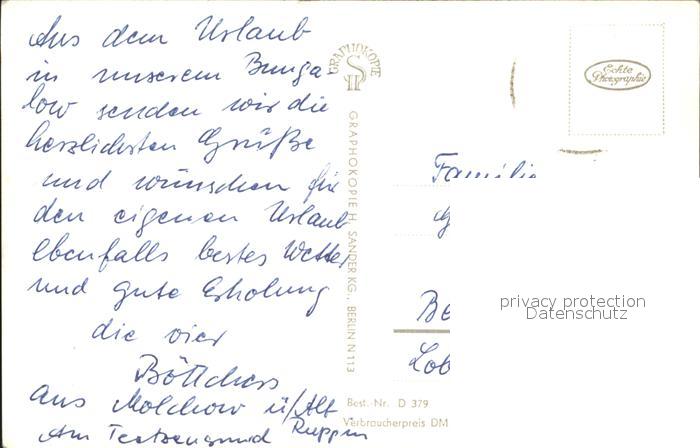 Aus dem Urlaub
in unserem Bunga
low senden wir die
herzlichsten Grüße
und wünschen für
den eigenen Urlaub
ebenfalls bestes Wetter
und gute Erholung
die vier
Böttchers
aus Molchow ü/Alt
Ruppin
Am
GRAPHOKOPIE
GRAPHOKOPIE H. SANDER KG., BERLIN N 113
Echte
Photographie
Familie
G
Be
Lob
privacy protection
Datenschutz
Best.-Nr. D 379
Verbraucherpreis DM